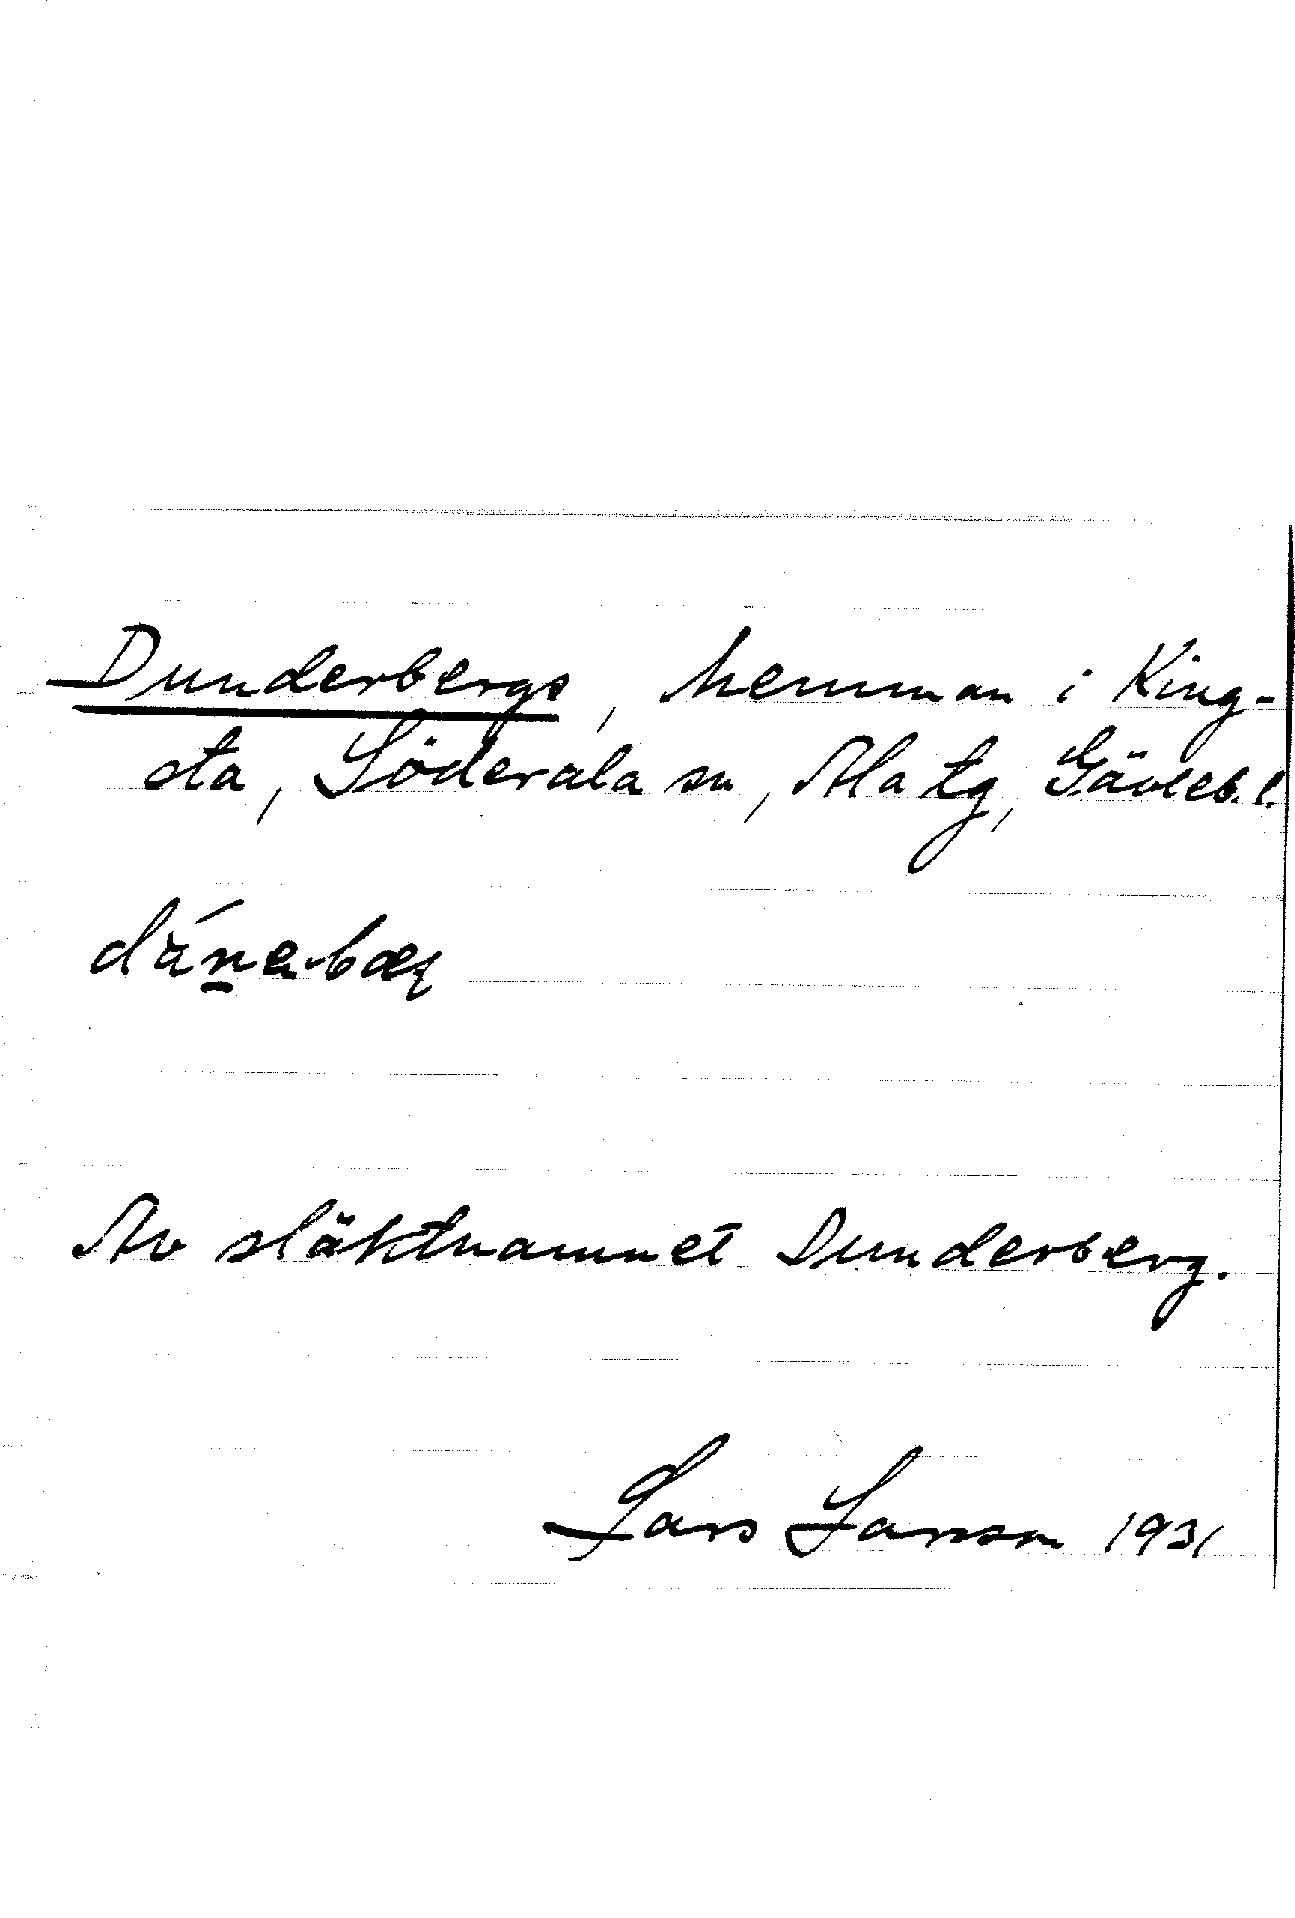 Dunderbergs, hemman i King-
sta, Söderala sn, Ala tg, Gävleb. l.
Av släktnamnet Dunderberg.
Lars Larsson 1931